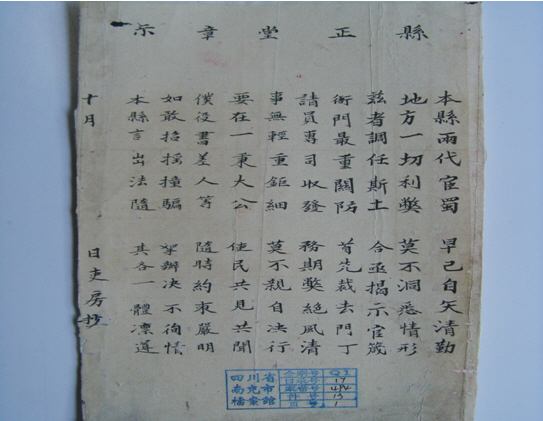 縣正堂章示
本縣兩代宦蜀 早已自矢清勤
地方一切利獘 莫不洞悉情形
兹者調任斯土 合亟揭示官箴
衙門最重關防 首先裁去門丁
請員專司收發 務期獘絕風清
事無輕重鉅細 莫不親自决行
要在一秉大公 使民共見共聞
僕役書差人等 隨時約束嚴明
如敢招搖撞騙 拏辦决不徇情
本縣言出法隨 其各一體凜遵
十月 日吏房抄
四川省
南充市
檔案館
全宗号
目录号 17
案卷号
件号 13
页号 1